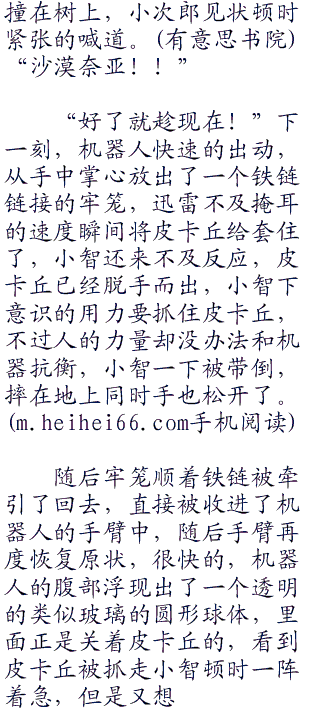 撞在树上，小次郎见状顿时
紧张的喊道。(有意思书院)
“沙漠奈亚！！”
“好了就趁现在！”下
一刻，机器人快速的出动，
从手中掌心放出了一个铁链
链接的牢笼，迅雷不及掩耳
的速度瞬间将皮卡丘给套住
了，小智还来不及反应，皮
卡丘已经脱手而出，小智下
意识的用力要抓住皮卡丘，
不过人的力量却没办法和机
器抗衡，小智一下被带倒，
摔在地上同时手也松开了。
(m.heihei66.com手机阅读)
随后牢笼顺着铁链被牵
引了回去，直接被收进了机
器人的手臂中，随后手臂再
度恢复原状，很快的，机器
人的腹部浮现出了一个透明
的类似玻璃的圆形球体，里
面正是关着皮卡丘的，看到
皮卡丘被抓走小智顿时一阵
着急，但是又想